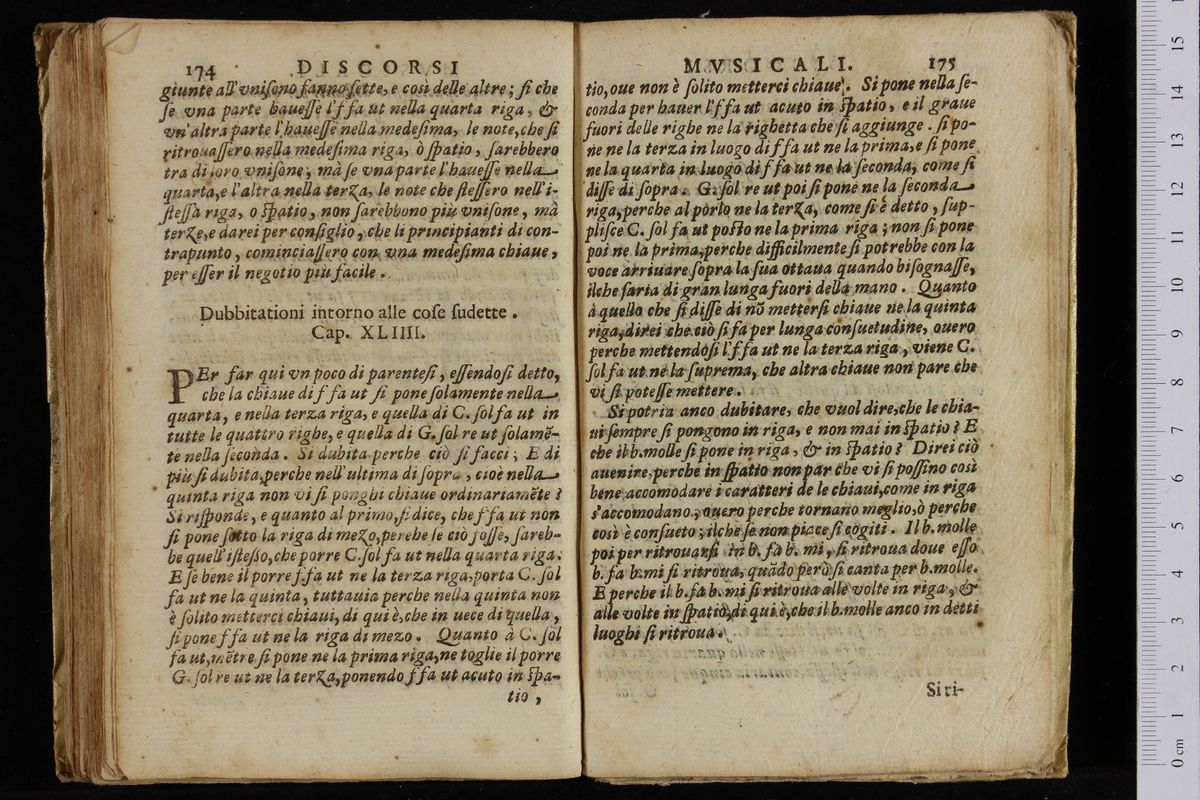 174 DISCORSI
giunte all'vnisono fanno sette, e così delle altre; si che
se vna parte hauesse l'f fa ut nella quarta riga, &
vn'altra parte l'hauesse nella medesima, le note, che si
ritrouassero nella medesima riga, ò spatio, sarebbero
tra di loro vnisone; mà se vna parte l'hauesse nella
quarta, e l'altra nella terza, le note che stessero nell'i-
stessa riga, o spatio, non sarebbono più vnisone, mà
terze, e darei per consiglio, che li principianti di con-
trapunto, cominciassero con vna medesima chiaue,
per esser il negotio più facile.
Dubbitationi intorno alle cose sudette.
Cap. XLIIII.
PEr far qui vn poco di parentesi, essendosi detto,
che la chiaue di f fa ut si pone solamente nella
quarta, e nella terza riga, e quella di C. sol fa ut in
tutte le quattro righe, e quella di G. sol re ut solamẽ-
te nella seconda. Si dubita perche ciò si facci; E di
più si dubita, perche nell'ultima di sopra, cioè nella
quinta riga non vi si ponghi chiaue ordinariamẽte?
Si risponde, e quanto al primo, si dice, che f fa ut non
si pone sotto la riga di mezo, perche se ciò fosse, sareb-
be quell'istesso, che porre C. sol fa ut nella quarta riga.
E se bene il porre f fa ut ne la terza riga, porta C. sol
fa ut ne la quinta, tuttauia perche nella quinta non
è solito metterci chiaui, di qui è, che in uece di quella,
si pone f fa ut ne la riga di mezo. Quanto à C. sol
fa ut, mẽtre si pone ne la prima riga, ne toglie il porre
G. sol re ut ne la terza, ponendo f fa ut acuto in spa-
tio,
MVSICALI. 175
tio, oue non è solito metterci chiaue. Si pone nella se-
conda per hauer l'f fa ut acuto in spatio, e il graue
fuori delle righe ne la righetta che si aggiunge. si po-
ne ne la terza in luogo di f fa ut ne la prima, e si pone
ne la quarta in luogo di f fa ut ne la seconda, come si
disse di sopra. G. sol re ut poi si pone ne la seconda
riga, perche al porlo ne la terza, come si è detto, sup-
plisce C. sol fa ut posto ne la prima riga; non si pone
poi ne la prima, perche difficilmente si potrebbe con la
voce arriuare sopra la sua ottaua quando bisognasse,
ilche saria di gran lunga fuori della mano. Quanto
à quello che si disse di nõ mettersi chiaue ne la quinta
riga, direi che ciò si fa per lunga consuetudine, ouero
perche mettendosi l'f fa ut ne la terza riga, viene C.
sol fa ut ne la suprema, che altra chiaue non pare che
vi si potesse mettere.
Si potria anco dubitare, che vuol dire, che le chia-
ui sempre si pongono in riga, e non mai in spatio? E
che il b. molle si pone in riga, & in spatio? Direi ciò
auenire, perche in spatio non par che vi si possino così
bene accomodare i caratteri de le chiaui, come in riga
s'accomodano, ouero perche tornano meglio, ò perche
così è consueto; ilche se non piace si cogiti. Il b. molle
poi per ritrouarsi in b. fa b. mi, si ritroua doue esso
b. fa b. mi si ritroua, quãdo però si canta per b. molle.
E perche il b. fa b. mi si ritroua alle volte in riga, &
alle volte in spatio, di qui è, che il b. molle anco in detti
luoghi si ritroua.
Si ri-
0 cm 1 2 3 4 5 6 7 8 9 10 11 12 13 14 15